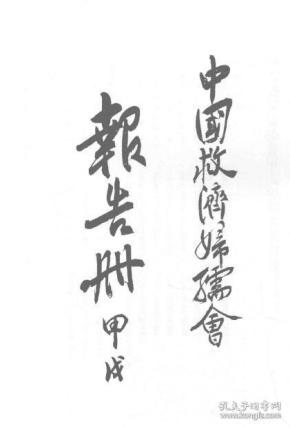 中國救濟婦孺會
報告冊 甲戌
孔夫子旧书网